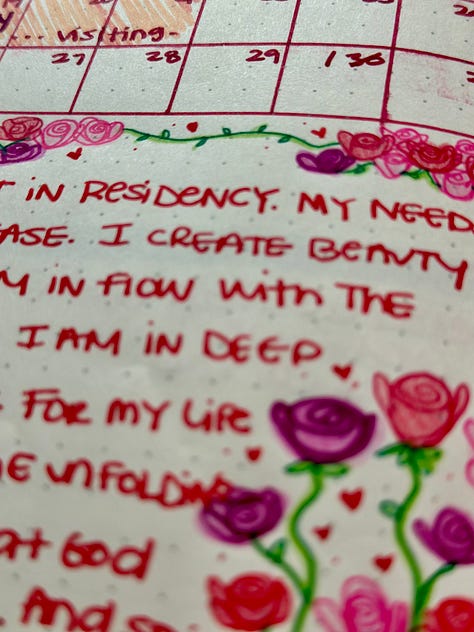 ... visiting-
27 28 29 1 30
in Residency. My Need
ASE. I CREATE BEAUTY
M in flow with The
I AM in DEEP
FOR my Life
unfolding
at God
And